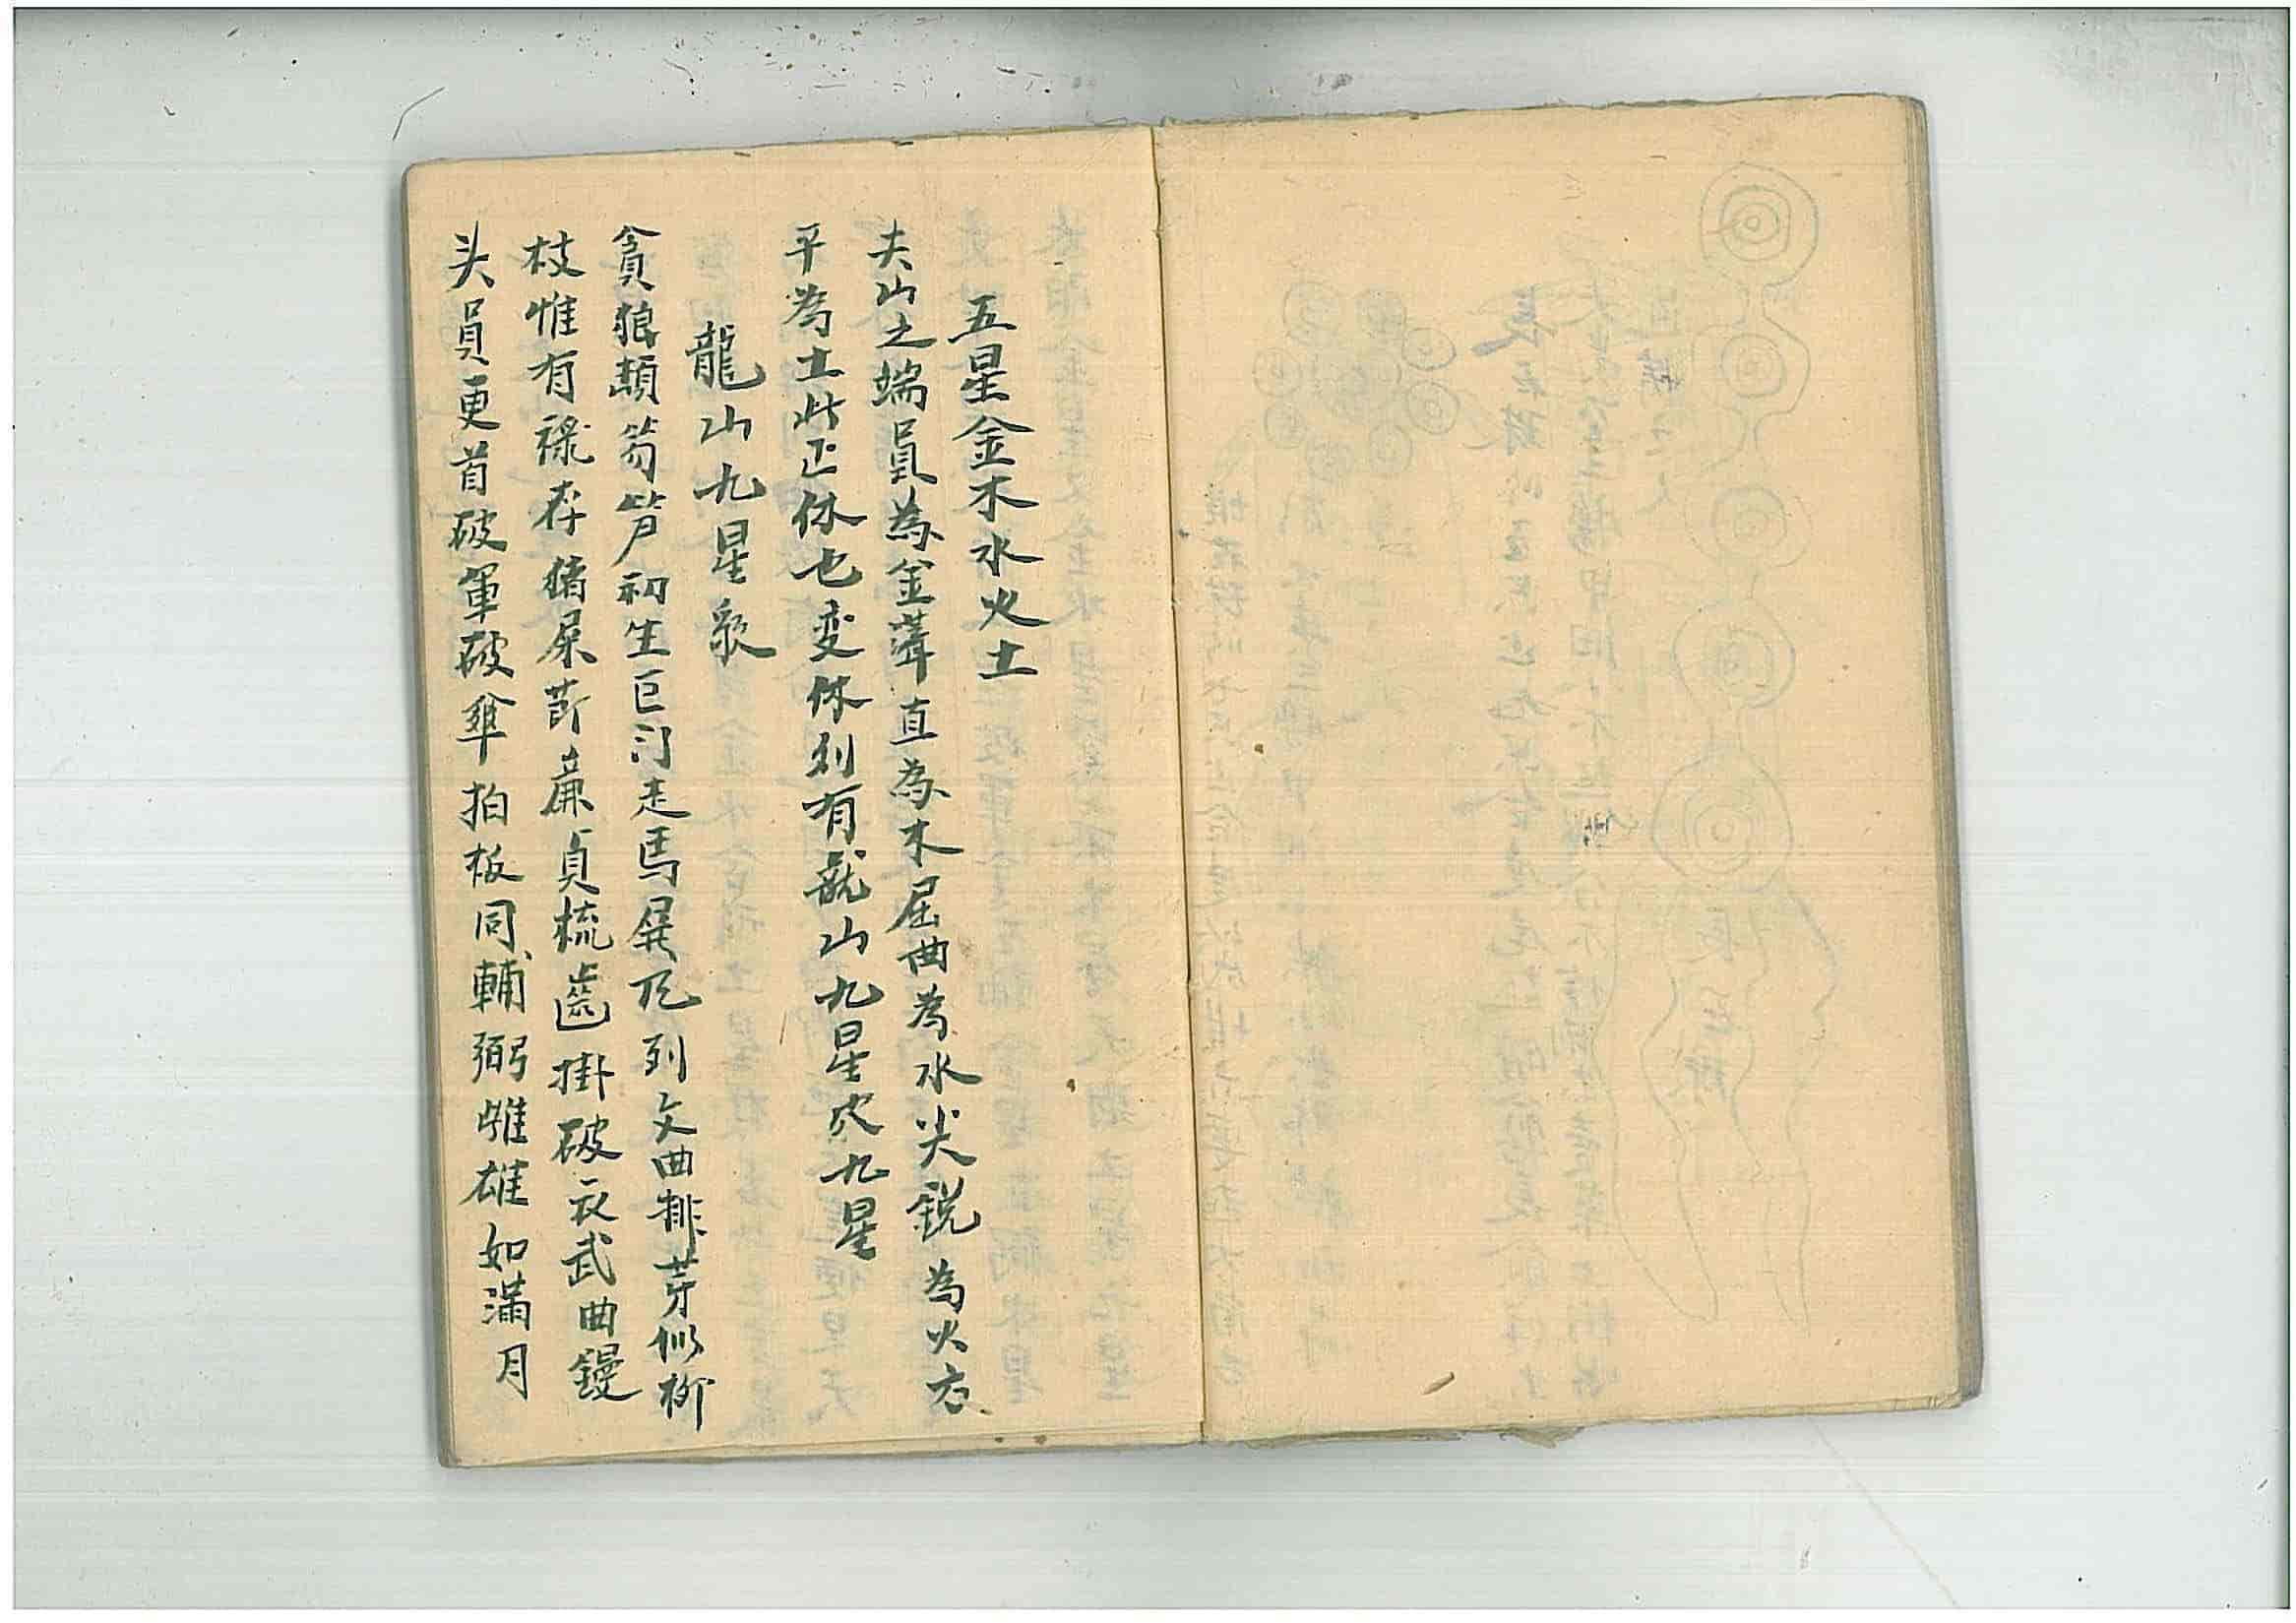 五星金木水火土
夫山之端員為金聳直為木屈曲為水尖銳為火方
平為土此正休也变休列有龍山九星穴九星
龍山九星歌
貪狼頓笏笋初生巨门走馬屏风列文曲排芽似柳
枝惟有祿存猪屎節廉貞梳齒掛破衣武曲饅
头員更首破軍破傘拍板同輔弼雌雄如滿月